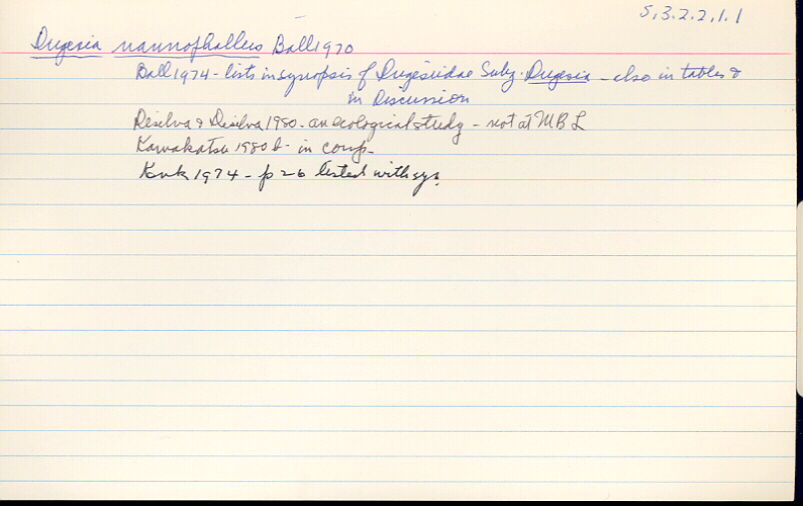 5.3.2.2.1.1
Dugesia nannophallus Ball 1970
Ball 1974 - lists in synopsis of Dugesiidae Subg. Dugesia - also in tables &
in Discussion
Desilva & Desilva 1980 - an ecological study - not at MBL
Kawakatsu 1980 b - in comp.
Kenk 1974 - p 26 listed with syn.